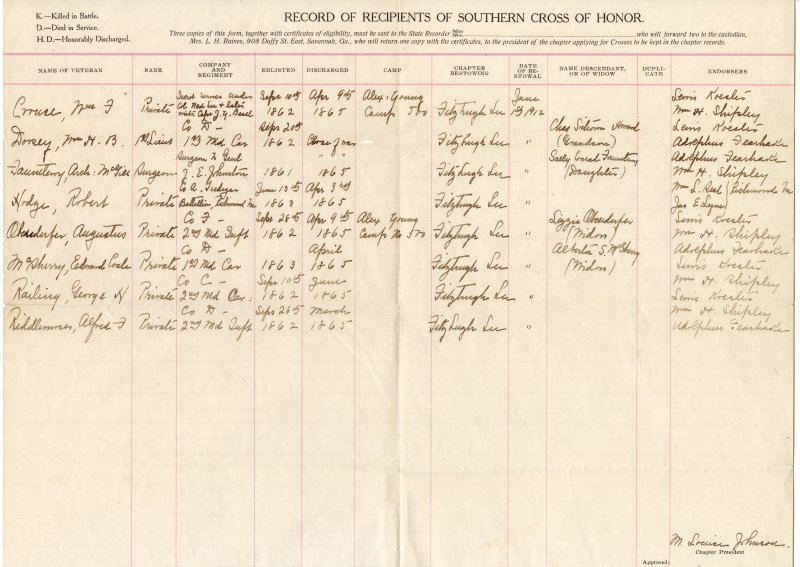 K.—Killed in Battle.
D.—Died in Service.
H. D.—Honorably Discharged.
RECORD OF RECIPIENTS OF SOUTHERN CROSS OF HONOR.
Three copies of this form, together with certificates of eligibility, must be sent to the State Recorder Miss Mrs. who will forward two to the custodian,
Mrs. L. H. Raines, 908 Duffy St. East, Savannah, Ga., who will return one copy with the certificates, to the president of the chapter applying for Crosses to be kept in the chapter records.
NAME OF VETERAN RANK COMPANY AND REGIMENT ENLISTED DISCHARGED CAMP CHAPTER BESTOWING DATE OF BESTOWAL NAME DESCENDANT, OR OF WIDOW DUPLICATE ENDORSERS
Sept 10th Apr 9th Alex: Young June
Crouse, Wm F Private 1862 1865 Camp 500 Fitzhugh Lee 1912 Wm H. Shipley
Co D Sept 20th
Dorsey, Wm H. B. 1st Lieut 1st Md Cav 1862 Close of war Fitzhugh Lee " (Grandson) Adolphus Fearhake
Surgeon " " Adolphus Fearhake
Surgeon J. E. Johnston 1861 1865 Fitzhugh Lee " (Daughter) Wm H. Shipley
Co A. June 13th Apr 3rd
Hodge, Robert Private 1863 1865 Fitzhugh Lee "
Co F Sept 28th Apr 9th Alex Young Lizzie
Augustus Private 2nd Md Inft 1862 1865 Camp No 500 Fitzhugh Lee " (Widow) Wm H. Shipley
Co D April Alberta S. McSherry Adolphus Fearhake
McSherry, Edward Private 1st Md Cav 1863 1865 Fitzhugh Lee " (Widow)
Co C Sept 10th June Wm H. Shipley
Railing, George H Private 2nd Md Cav: 1862 1865 Fitzhugh Lee "
Co D Sept 28th March Wm H. Shipley
Riddlemoser, Alfred F Private 2nd Md Inft 1862 1865 Fitzhugh Lee " Adolphus Fearhake
M. Louise Johnson
Chapter President
Approved: